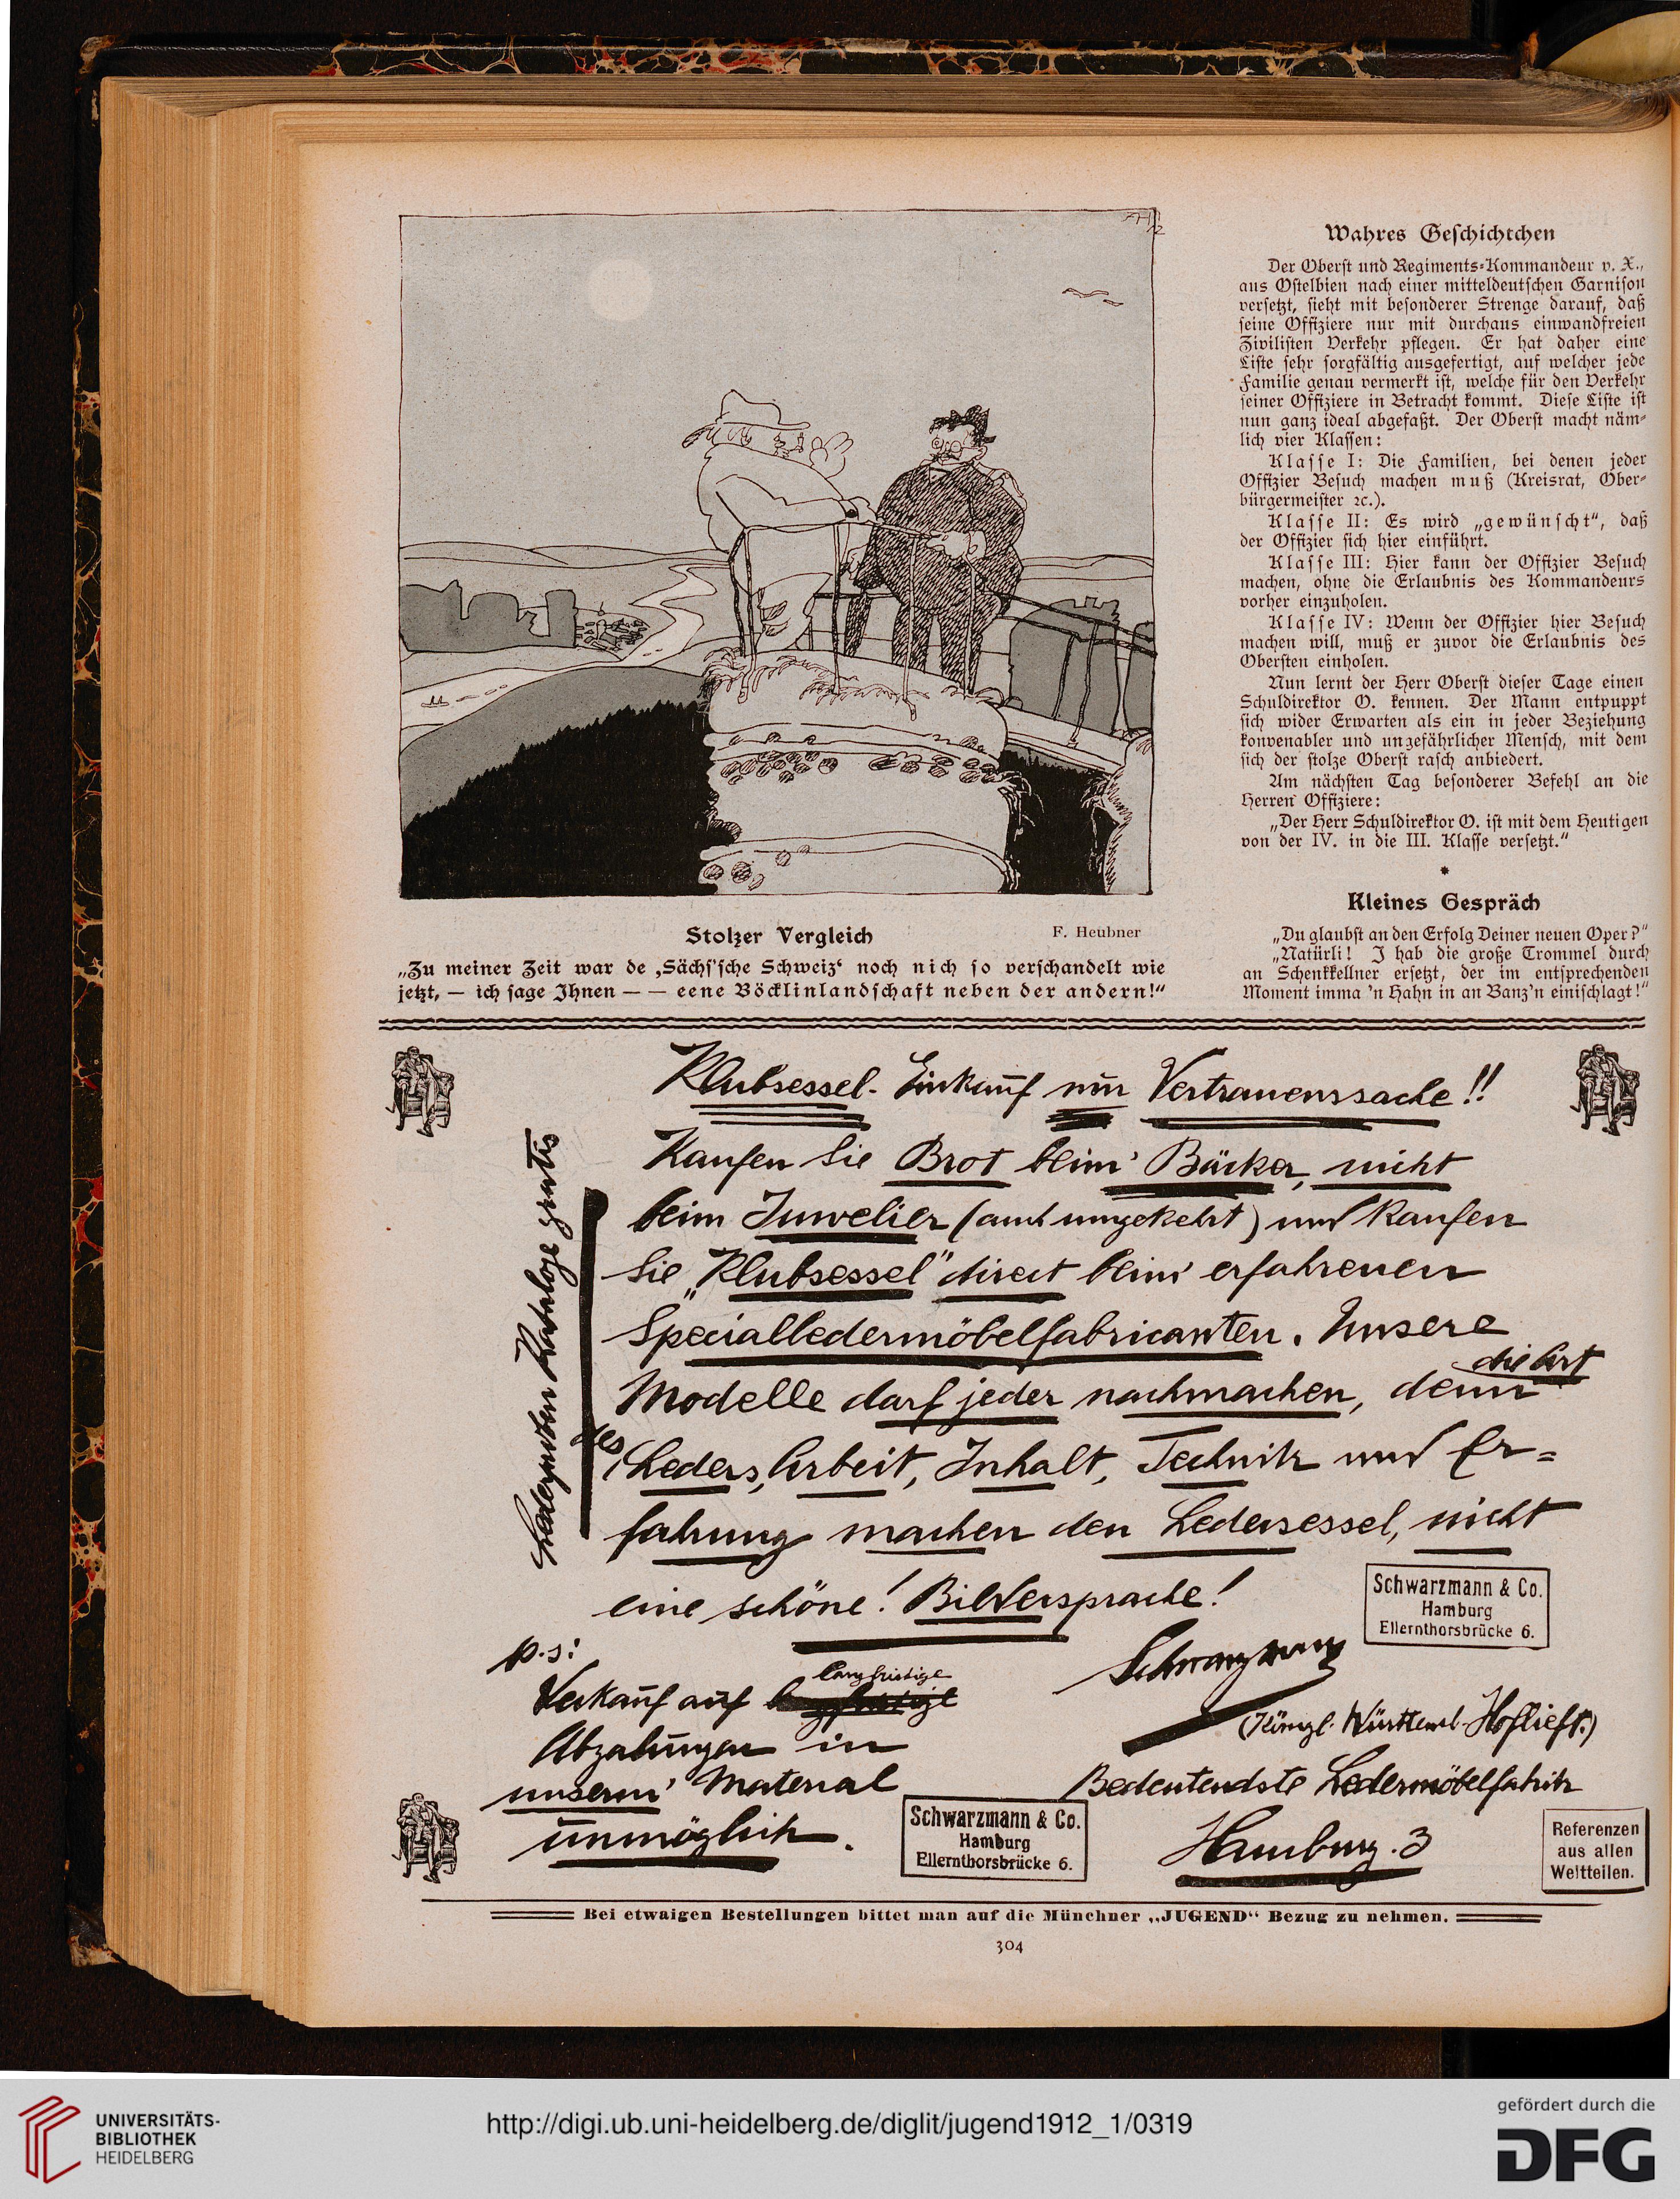 FH
12
Stolzer Vergleich
F. Heubner
„Zu meiner Zeit war de ‚Sächs'sche Schweiz‘ noch nich so verschandelt wie
jetzt, — ich sage Ihnen — — eene Böcklinlandschaft neben der andern!“
Wahres Geschichtchen
Der Oberst und Regiments-Kommandeur v. X.,
aus Ostelbien nach einer mitteldeutschen Garnison
versetzt, sieht mit besonderer Strenge darauf, daß
seine Offiziere nur mit durchaus einwandfreien
Zivilisten Verkehr pflegen. Er hat daher eine
Liste sehr sorgfältig ausgefertigt, auf welcher jede
Familie genau vermerkt ist, welche für den Verkehr
seiner Offiziere in Betracht kommt. Diese Liste ist
nun ganz ideal abgefaßt. Der Oberst macht näm-
lich vier Klassen:
Klasse I: Die Familien, bei denen jeder
Offizier Besuch machen muß (Kreisrat, Ober-
bürgermeister ꝛc.).
Klasse II: Es wird „gewünscht“, daß
der Offizier sich hier einführt.
Klasse III: Hier kann der Offizier Besuch
machen, ohne die Erlaubnis des Kommandeurs
vorher einzuholen.
Klasse IV: Wenn der Offizier hier Besuch
machen will, muß er zuvor die Erlaubnis des
Obersten einholen.
Nun lernt der Herr Oberst dieser Tage einen
Schuldirektor O. kennen. Der Mann entpuppt
sich wider Erwarten als ein in jeder Beziehung
konvenabler und ungefährlicher Mensch, mit dem
sich der stolze Oberst rasch anbiedert.
Am nächsten Tag besonderer Befehl an die
Herren Offiziere:
„Der Herr Schuldirektor O. ist mit dem Heutigen
von der IV. in die III. Klasse versetzt.“
*
Kleines Gespräch
„Du glaubst an den Erfolg Deiner neuen Oper?“
„Natürli! I hab die große Trommel durch
an Schenkkellner ersetzt, der im entsprechenden
Moment imma 'n Hahn in an Banz'n einischlagt!“
Klubsessel-Einkauf nur Vertrauenssache!!
Kaufen Sie Brot beim Bäcker, nicht
beim Juwelier (auch umgekehrt) und kaufen
Sie „Klubsessel“ direct beim erfahrenen
Specialledermöbelfabricanten. Unsere
Modelle darf jeder nachmachen, denn die Art
des Leders, Arbeit, Inhalt, Technik und Er=
fahrung machen den Ledersessel, nicht
eine schöne! Bildersprache!
Lederproben Kataloge gratis
Schwarzmann & Co.
Hamburg
Ellernthorsbrücke 6.
p.s:
Verkauf auf langfristige
Abzahlungen in
unserm Material
unmöglich.
Schwarzmann
(Königl. Württembl. Hoflieft.)
Bedeutendste Ledermöbelfabrik
Hamburg. 3
Schwarzmann & Co.
Hamburg
Ellernthorsbrücke 6.
Referenzen
aus allen
Weltteilen.
Bei etwaigen Bestellungen bittet man auf die Münchner „JUGEND“ Bezug zu nehmen.
304
UNIVERSITÄTS-
BIBLIOTHEK
HEIDELBERG
http://digi.ub.uni-heidelberg.de/diglit/jugend1912_1/0319
gefördert durch die
DFG